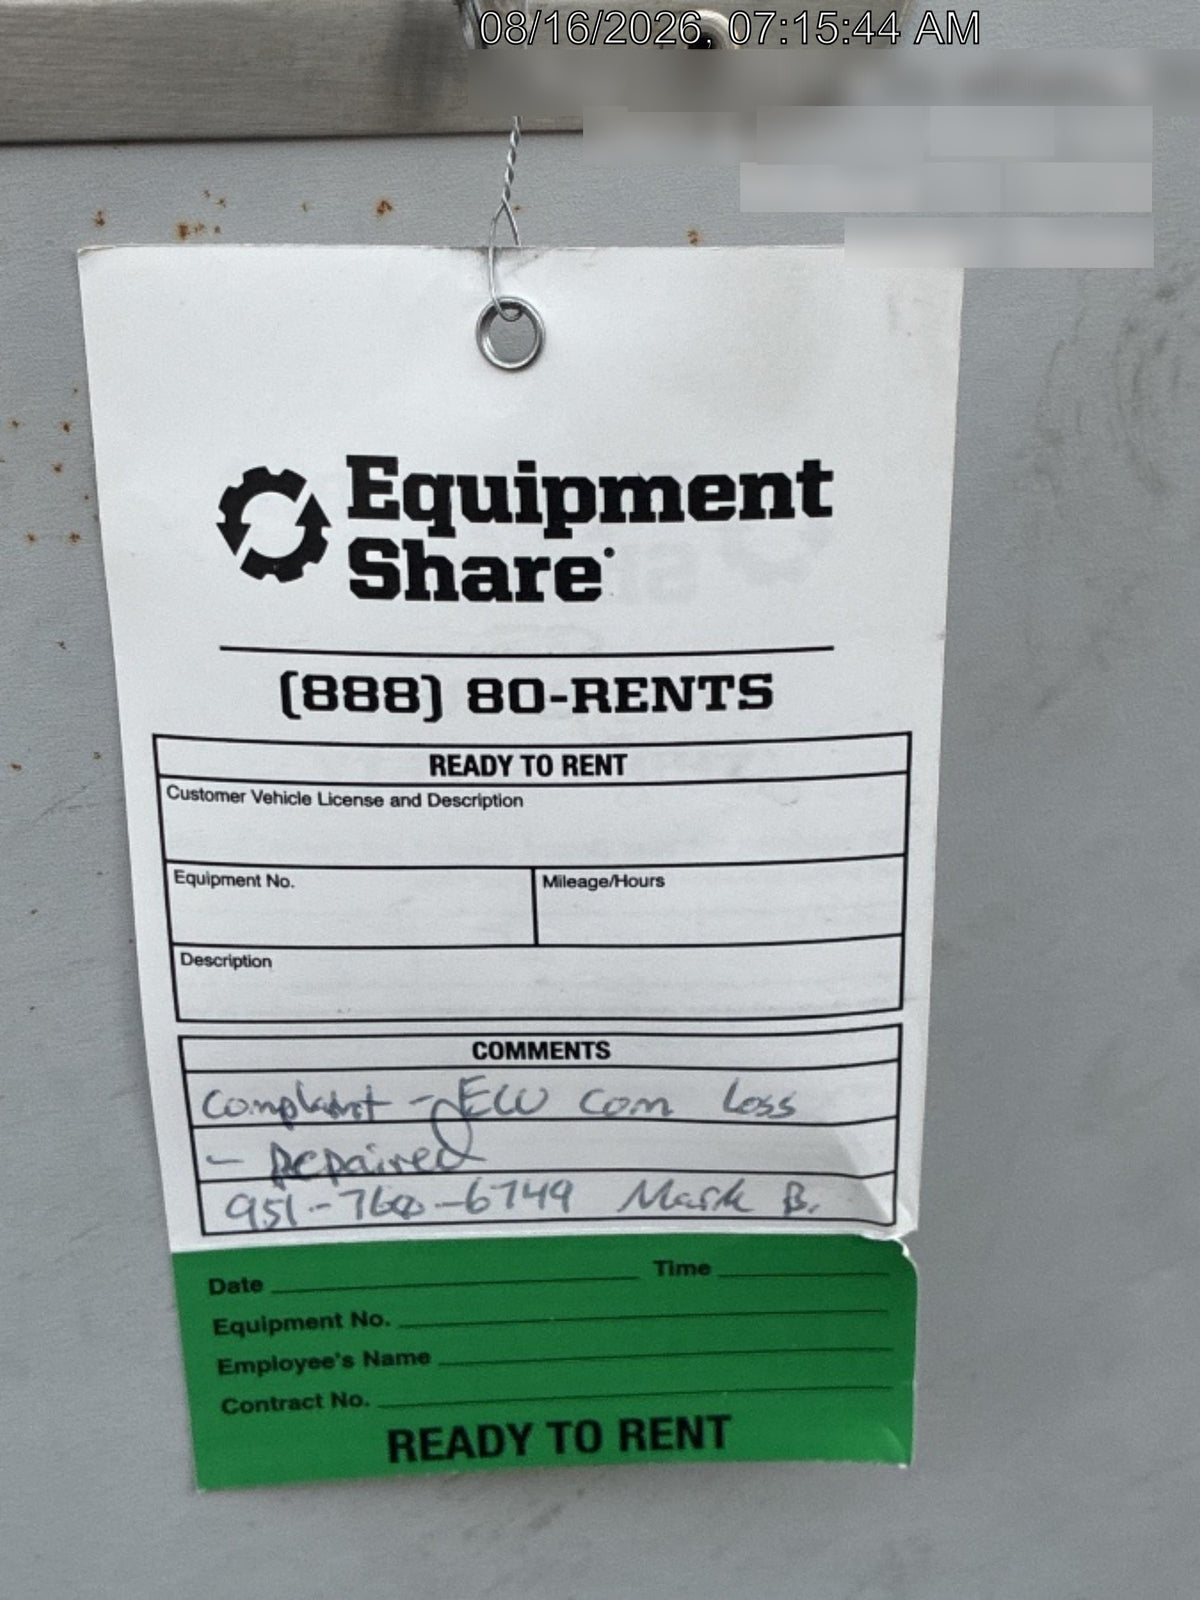 08/16/2026, 07:15:44 AM
Equipment
Share
(888) 80-RENTS
READY TO RENT
Customer Vehicle License and Description
Equipment No.
Mileage/Hours
Description
COMMENTS
Complaint - ECU Com Loss
- Repaired
951-760-6749 Mark B.
Date
Time
Equipment No.
Employee's Name
Contract No.
READY TO RENT